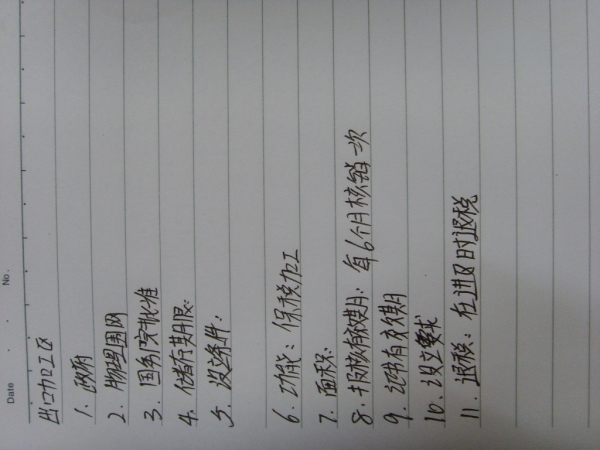 Date
No.
出口加工区
1. 政府
2. 物理围网
3. 国务院批准
4. 储存期限:
5. 设立条件:
6. 功能: 保税加工
7. 面积:
8. 报核有效期: 每6个月核销一次
9. 证书有效期
10. 设立要求
11. 退税: 在进区时退税